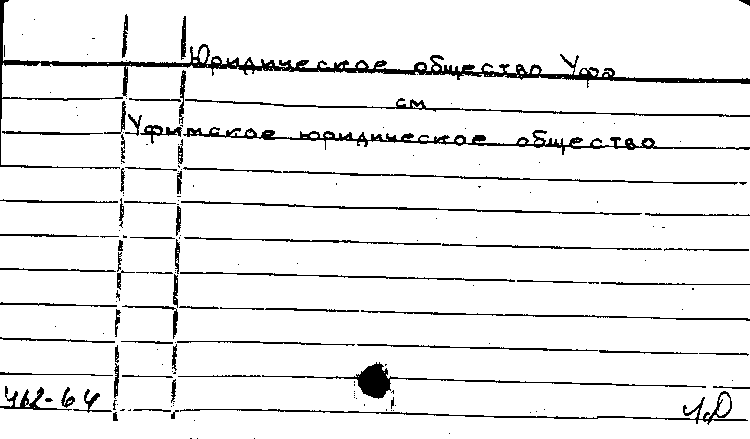 Юридическое общество Уфа
см
Уфимское юридическое общество
462-64